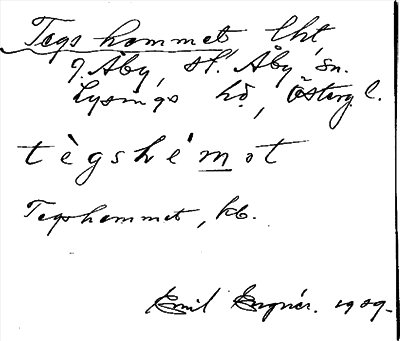 Tegshammet, lht
J. Åby, st. Åby sn.
Lysings hd, Österg l.
tègshé'mot
Tegshammet, kb.
Emil Engnér. 1909.